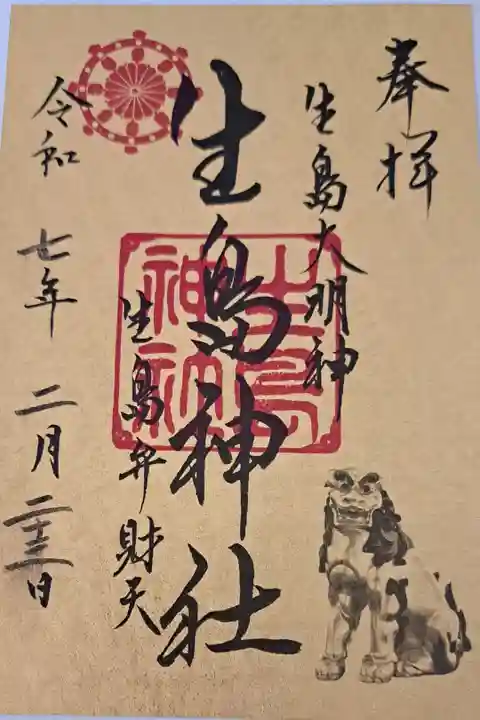 奉拝
生島大明神
生島神社
生島弁財天
令和 七年 二月 二十三日
生島
神社